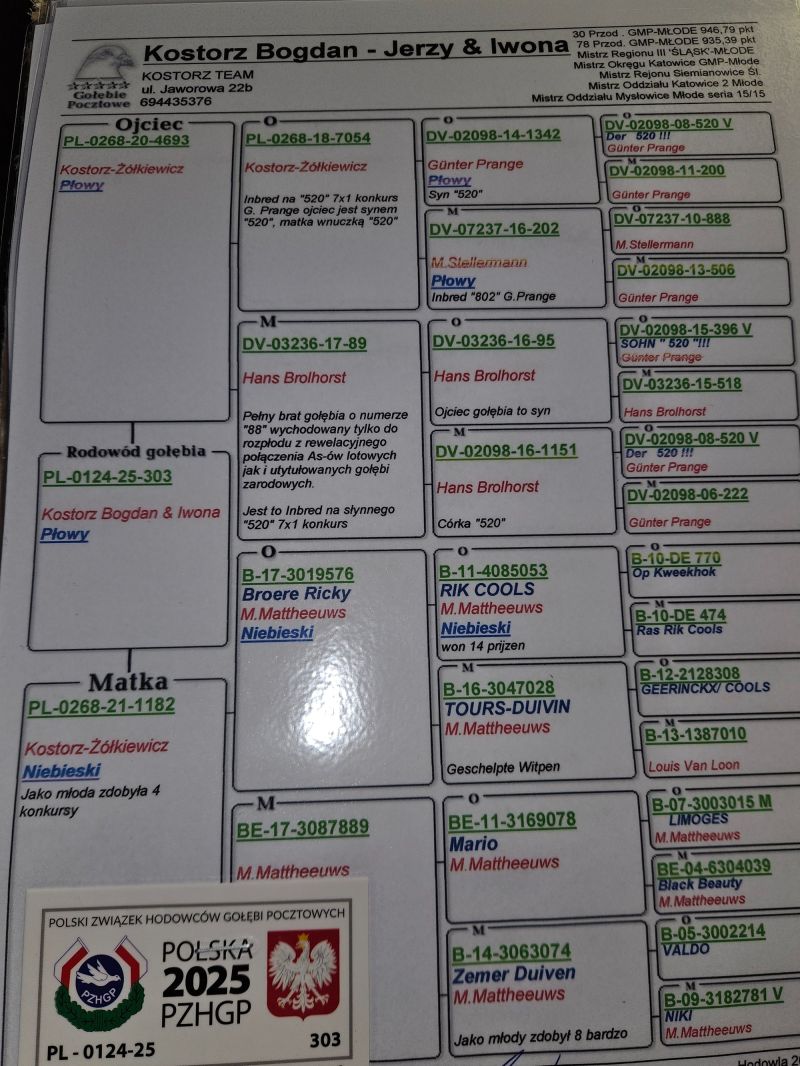 Kostorz Bogdan - Jerzy & Iwona
KOSTORZ TEAM
ul. Jaworowa 22b
694435376
Gołębie
Pocztowe
30 Przod . GMP-MŁODE 946,79 pkt
78 Przod. GMP-MŁODE 935,39 pkt
Mistrz Regionu III 'ŚLĄSK'-MŁODE
Mistrz Okręgu Katowice GMP-Młode
Mistrz Rejonu Siemianowice Śl.
Mistrz Oddziału Katowice 2 Młode
Mistrz Oddziału Mysłowice Młode seria 15/15
Ojciec
PL-0268-20-4693
Kostorz-Żółkiewicz
Płowy
Rodowód gołębia
PL-0124-25-303
Kostorz Bogdan & Iwona
Płowy
Matka
PL-0268-21-1182
Kostorz-Żółkiewicz
Niebieski
Jako młoda zdobyła 4
konkursy
O
PL-0268-18-7054
Kostorz-Żółkiewicz
Inbred na "520" 7x1 konkurs
G. Prange ojciec jest synem
"520", matka wnuczką "520"
M
DV-03236-17-89
Hans Brolhorst
Pełny brat gołębia o numerze
"88" wychodowany tylko do
rozpłodu z rewelacyjnego
połączenia As-ów lotowych
jak i utytułowanych gołębi
zarodowych.
Jest to Inbred na słynnego
"520" 7x1 konkurs
O
B-17-3019576
Broere Ricky
M.Mattheeuws
Niebieski
M
BE-17-3087889
M.Mattheeuws
O
DV-02098-14-1342
Günter Prange
Płowy
Syn "520"
M
DV-07237-16-202
M.Stellermann
Płowy
Inbred "802" G.Prange
O
DV-03236-16-95
Hans Brolhorst
Ojciec gołębia to syn
M
DV-02098-16-1151
Hans Brolhorst
Córka "520"
O
B-11-4085053
RIK COOLS
M.Mattheeuws
Niebieski
won 14 prijzen
M
B-16-3047028
TOURS-DUIVIN
M.Mattheeuws
Geschelpte Witpen
O
BE-11-3169078
Mario
M.Mattheeuws
M
B-14-3063074
Zemer Duiven
M.Mattheeuws
Jako młody zdobył 8 bardzo
O
DV-02098-08-520 V
Der 520 !!!
Günter Prange
M
DV-02098-11-200
Günter Prange
O
DV-07237-10-888
M.Stellermann
M
DV-02098-13-506
Günter Prange
O
DV-02098-15-396 V
SOHN " 520 "!!!
Günter Prange
M
DV-03236-15-518
Hans Brolhorst
O
DV-02098-08-520 V
Der 520 !!!
Günter Prange
M
DV-02098-06-222
Günter Prange
O
B-10-DE 770
Op Kweekhok
M
B-10-DE 474
Ras Rik Cools
O
B-12-2128308
GEERINCKX/ COOLS
M
B-13-1387010
Louis Van Loon
O
B-07-3003015 M
LIMOGES
M.Mattheeuws
M
BE-04-6304039
Black Beauty
M.Mattheeuws
O
B-05-3002214
VALDO
M
B-09-3182781 V
NIKI
M.Mattheeuws
POLSKI ZWIĄZEK HODOWCÓW GOŁĘBI POCZTOWYCH
PZHGP
POLSKA
2025
PZHGP
PL - 0124-25
303